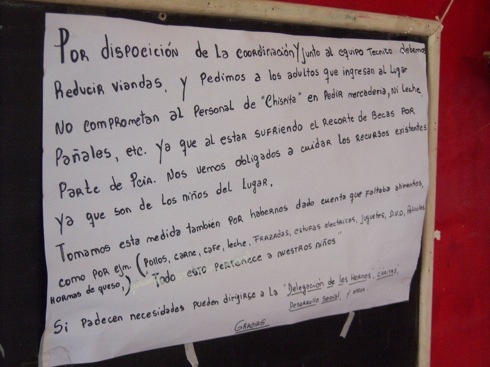 POR disposcición de la coordinación y junto al equipo tecnico debemos
Reducir viandas. y Pedimos a los adultos que ingresan al lugar
No comprometan al Personal de "Chispita" en Pedir mercaderia, Ni leche
Pañales, etc. ya que al estar sufriendo el Recorte de Becas POR
Parte de Pcia. Nos vemos obligados a cuidar los recursos existentes
ya que son de los niños del lugar.
Tomamos esta medida también POR habernos dado cuenta que faltaba alimentos,
como POR ejm. (Pollos, carne, cafe, leche, FRAZADAS, estufas electricas, juguetes, D.V.D, Peliculas
HORMAS de queso,) "Todo esto Pertenece a nuestros niños"
Si Padecen necesidades Pueden dirigirse a la "Delegación de los Hornos, caritas,
Desarrollo Social, y otros.
Gracias